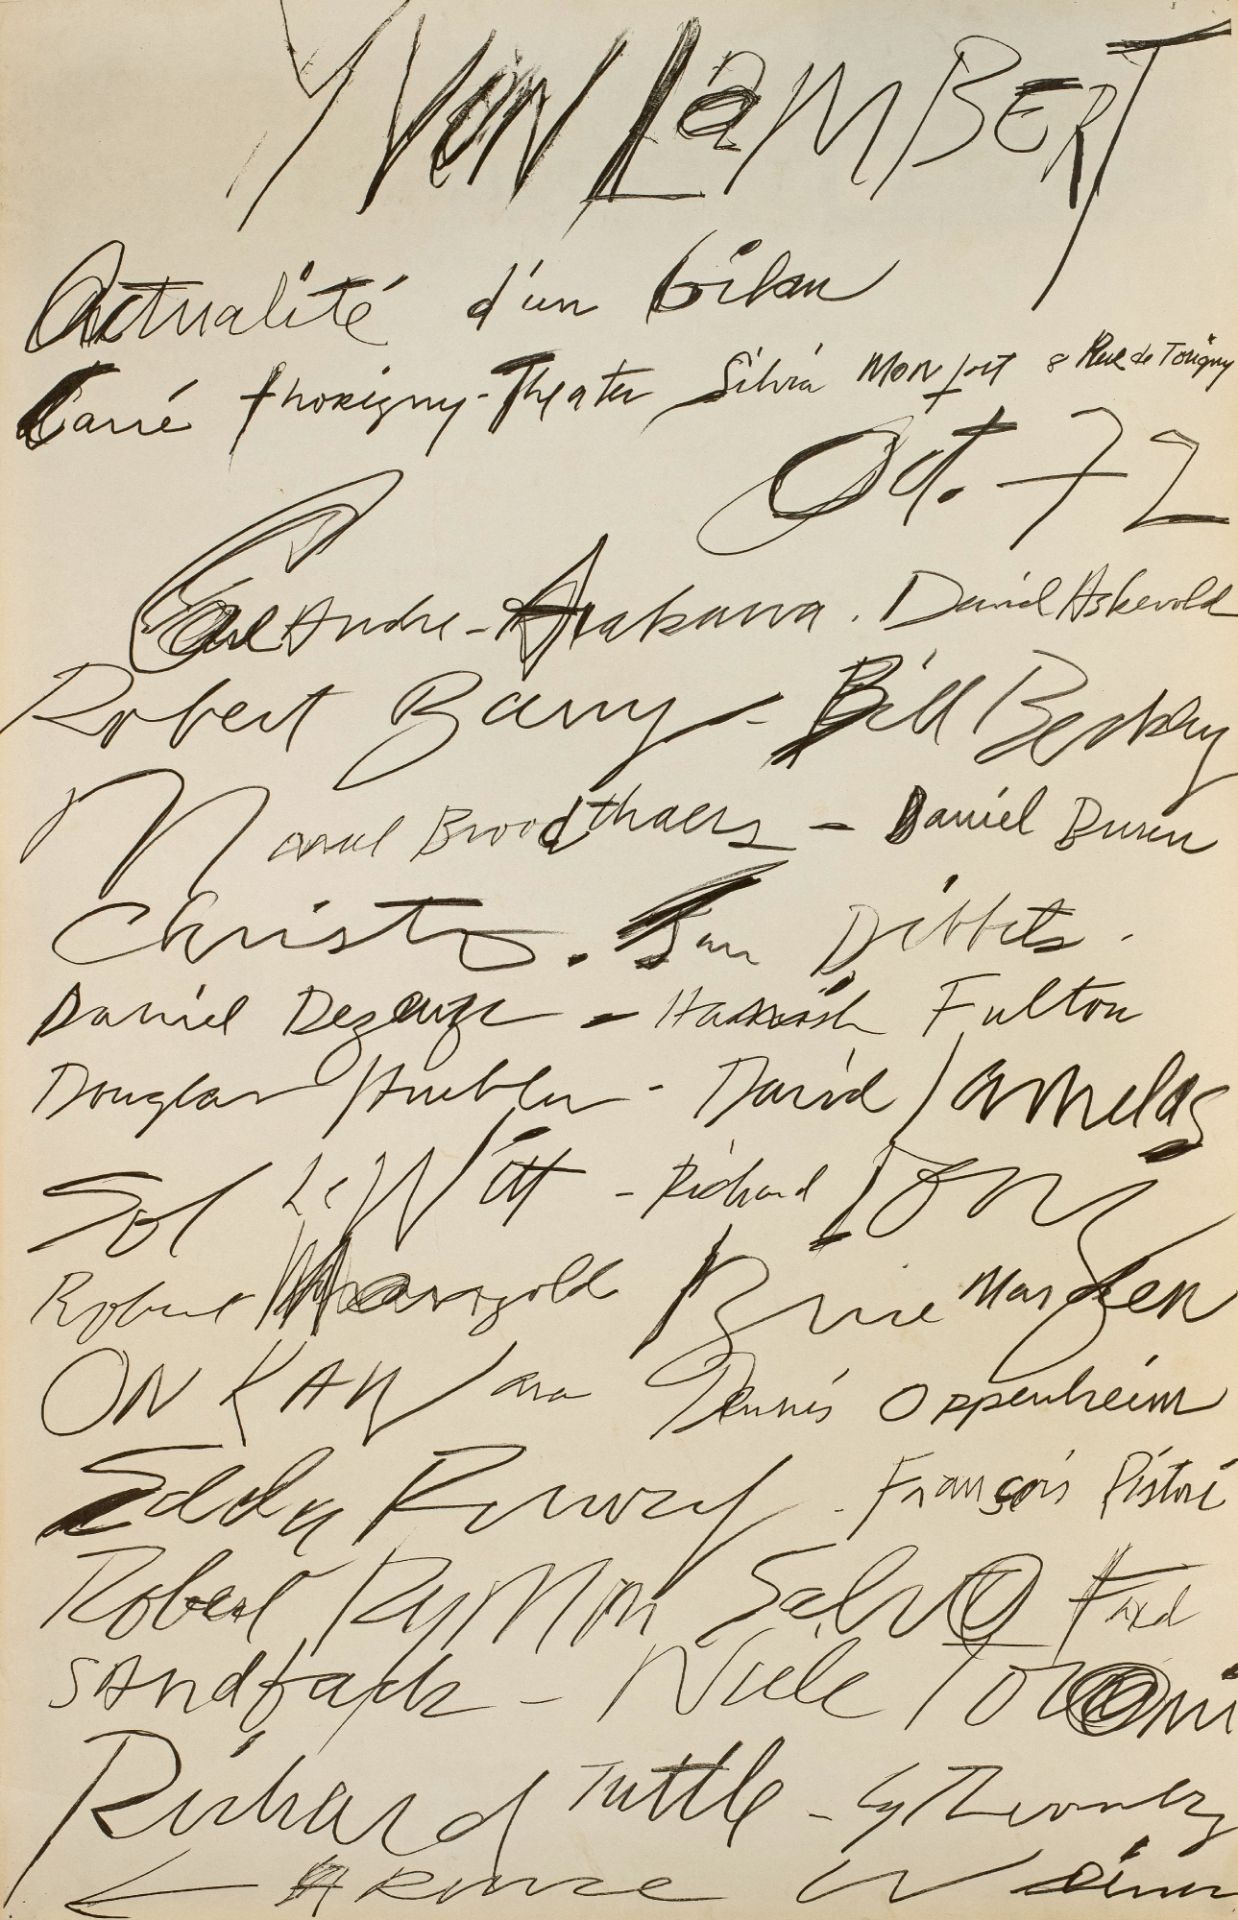 YVON LAMBERT
Actualité d'un bilan
Carré Thorigny - Theater Silvia Monfort 8 Rue de Torigny
Oct. 72
Carl Andre - Arakawa . David Askevold
Robert Barry - Bill Beckley
Marcel Broodthaers - Daniel Buren
Christo . Jan Dibbets .
Daniel Dezeuze - Hamish Fulton
Douglas Huebler - David Lamelas
Sol LeWitt - Richard Long
Robert Mangold Brice Marden
ON KAWara Dennis Oppenheim
Edda Renouf - François Ristori
Robert Ryman Salvo Fred
SAndback - Niele Toroni
Richard Tuttle - Cy Twombly
LAwrence Weiner